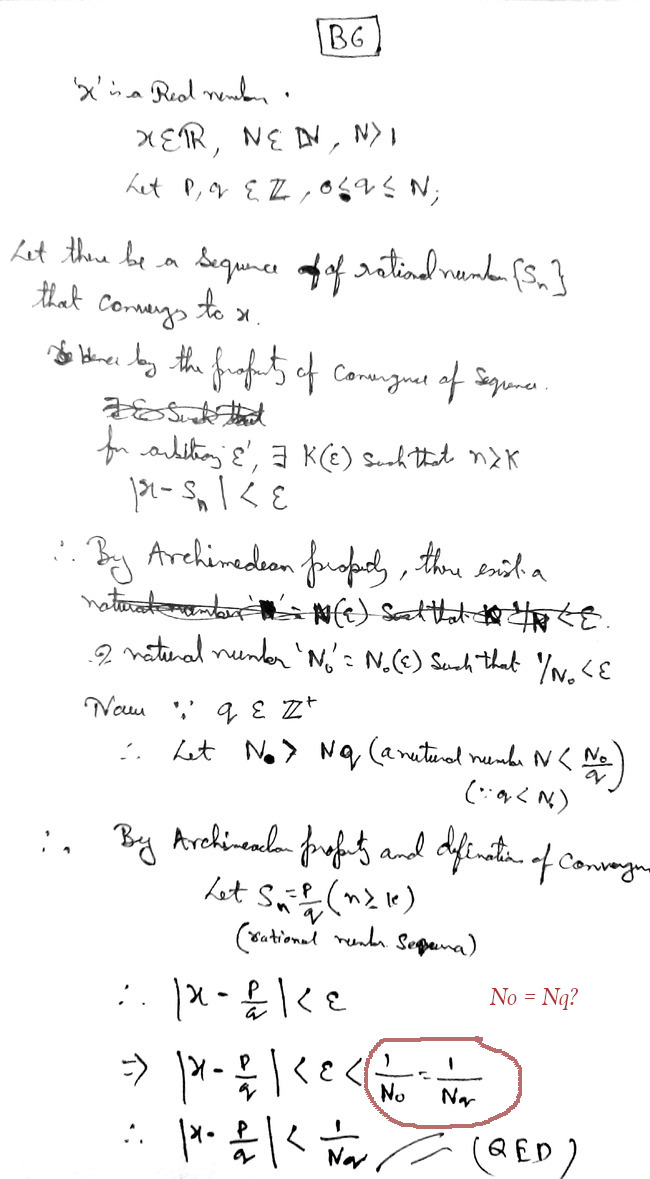 B6
'x' is a Real number.
x ∈ ℝ, N ∈ ℕ, N > 1
Let P, q ∈ ℤ, 0 ≤ q ≤ N;
Let there be a Sequence of rational number {Sn}
that converges to x.
Hence by the property of Convergence of Sequence.
for arbitrary 'ε', ∃ K(ε) such that n ≥ K
|x - Sn| < ε
∴ By Archimedean property, there exist a
natural number 'N' = N(ε) Such that 1/N < ε.
a natural number 'N₀' = N₀(ε) Such that 1/N₀ < ε
Now ∵ q ∈ ℤ⁺
∴ Let N₀ > Nq (a natural number N < N₀/q)
(∵ q < N)
∴ By Archimedean property and defination of Convergen
Let Sn = P/q (n ≥ k)
(rational number Sequence)
∴ |x - P/q| < ε
No = Nq?
⇒ |x - P/q| < ε < 1/N₀ = 1/Nq
∴ |x - P/q| < 1/Nq (QED)